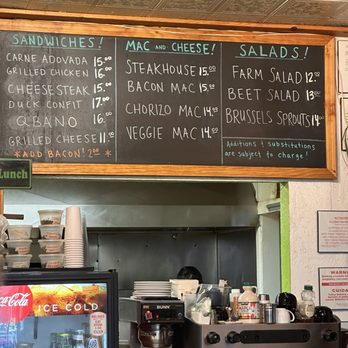 SANDWICHES!
CARNE ADOVADA 15.00
GRILLED CHICKEN 16.00
CHEESESTEAK 15.00
DUCK CONFIT 17.00
QBANO 16.00
GRILLED CHEESE 11.00
*ADD BACON! 2.00 *
MAC AND CHEESE!
STEAKHOUSE 15.00
BACON MAC 15.00
CHORIZO MAC 14.00
VEGGIE MAC 14.00
SALADS!
FARM SALAD 12.00
BEET SALAD 13.00
BRUSSELS SPROUTS 14.00
Additions & substitutions
are subject to charge!
Lunch
Coca-Cola
ICE COLD
BUNN
WARNING